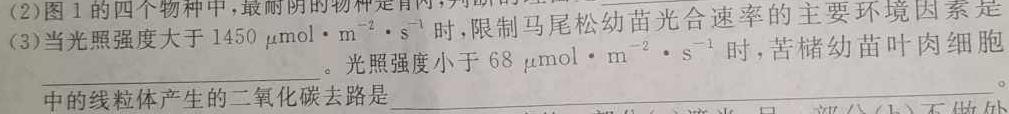 (2)图1的四个物种中,最耐阴的物种是青冈,判断的理由
(3)当光照强度大于 1450 μmol·m⁻²·s⁻¹ 时,限制马尾松幼苗光合速率的主要环境因素是
____________。光照强度小于 68 μmol·m⁻²·s⁻¹ 时,苦槠幼苗叶肉细胞
中的线粒体产生的二氧化碳去路是____________。